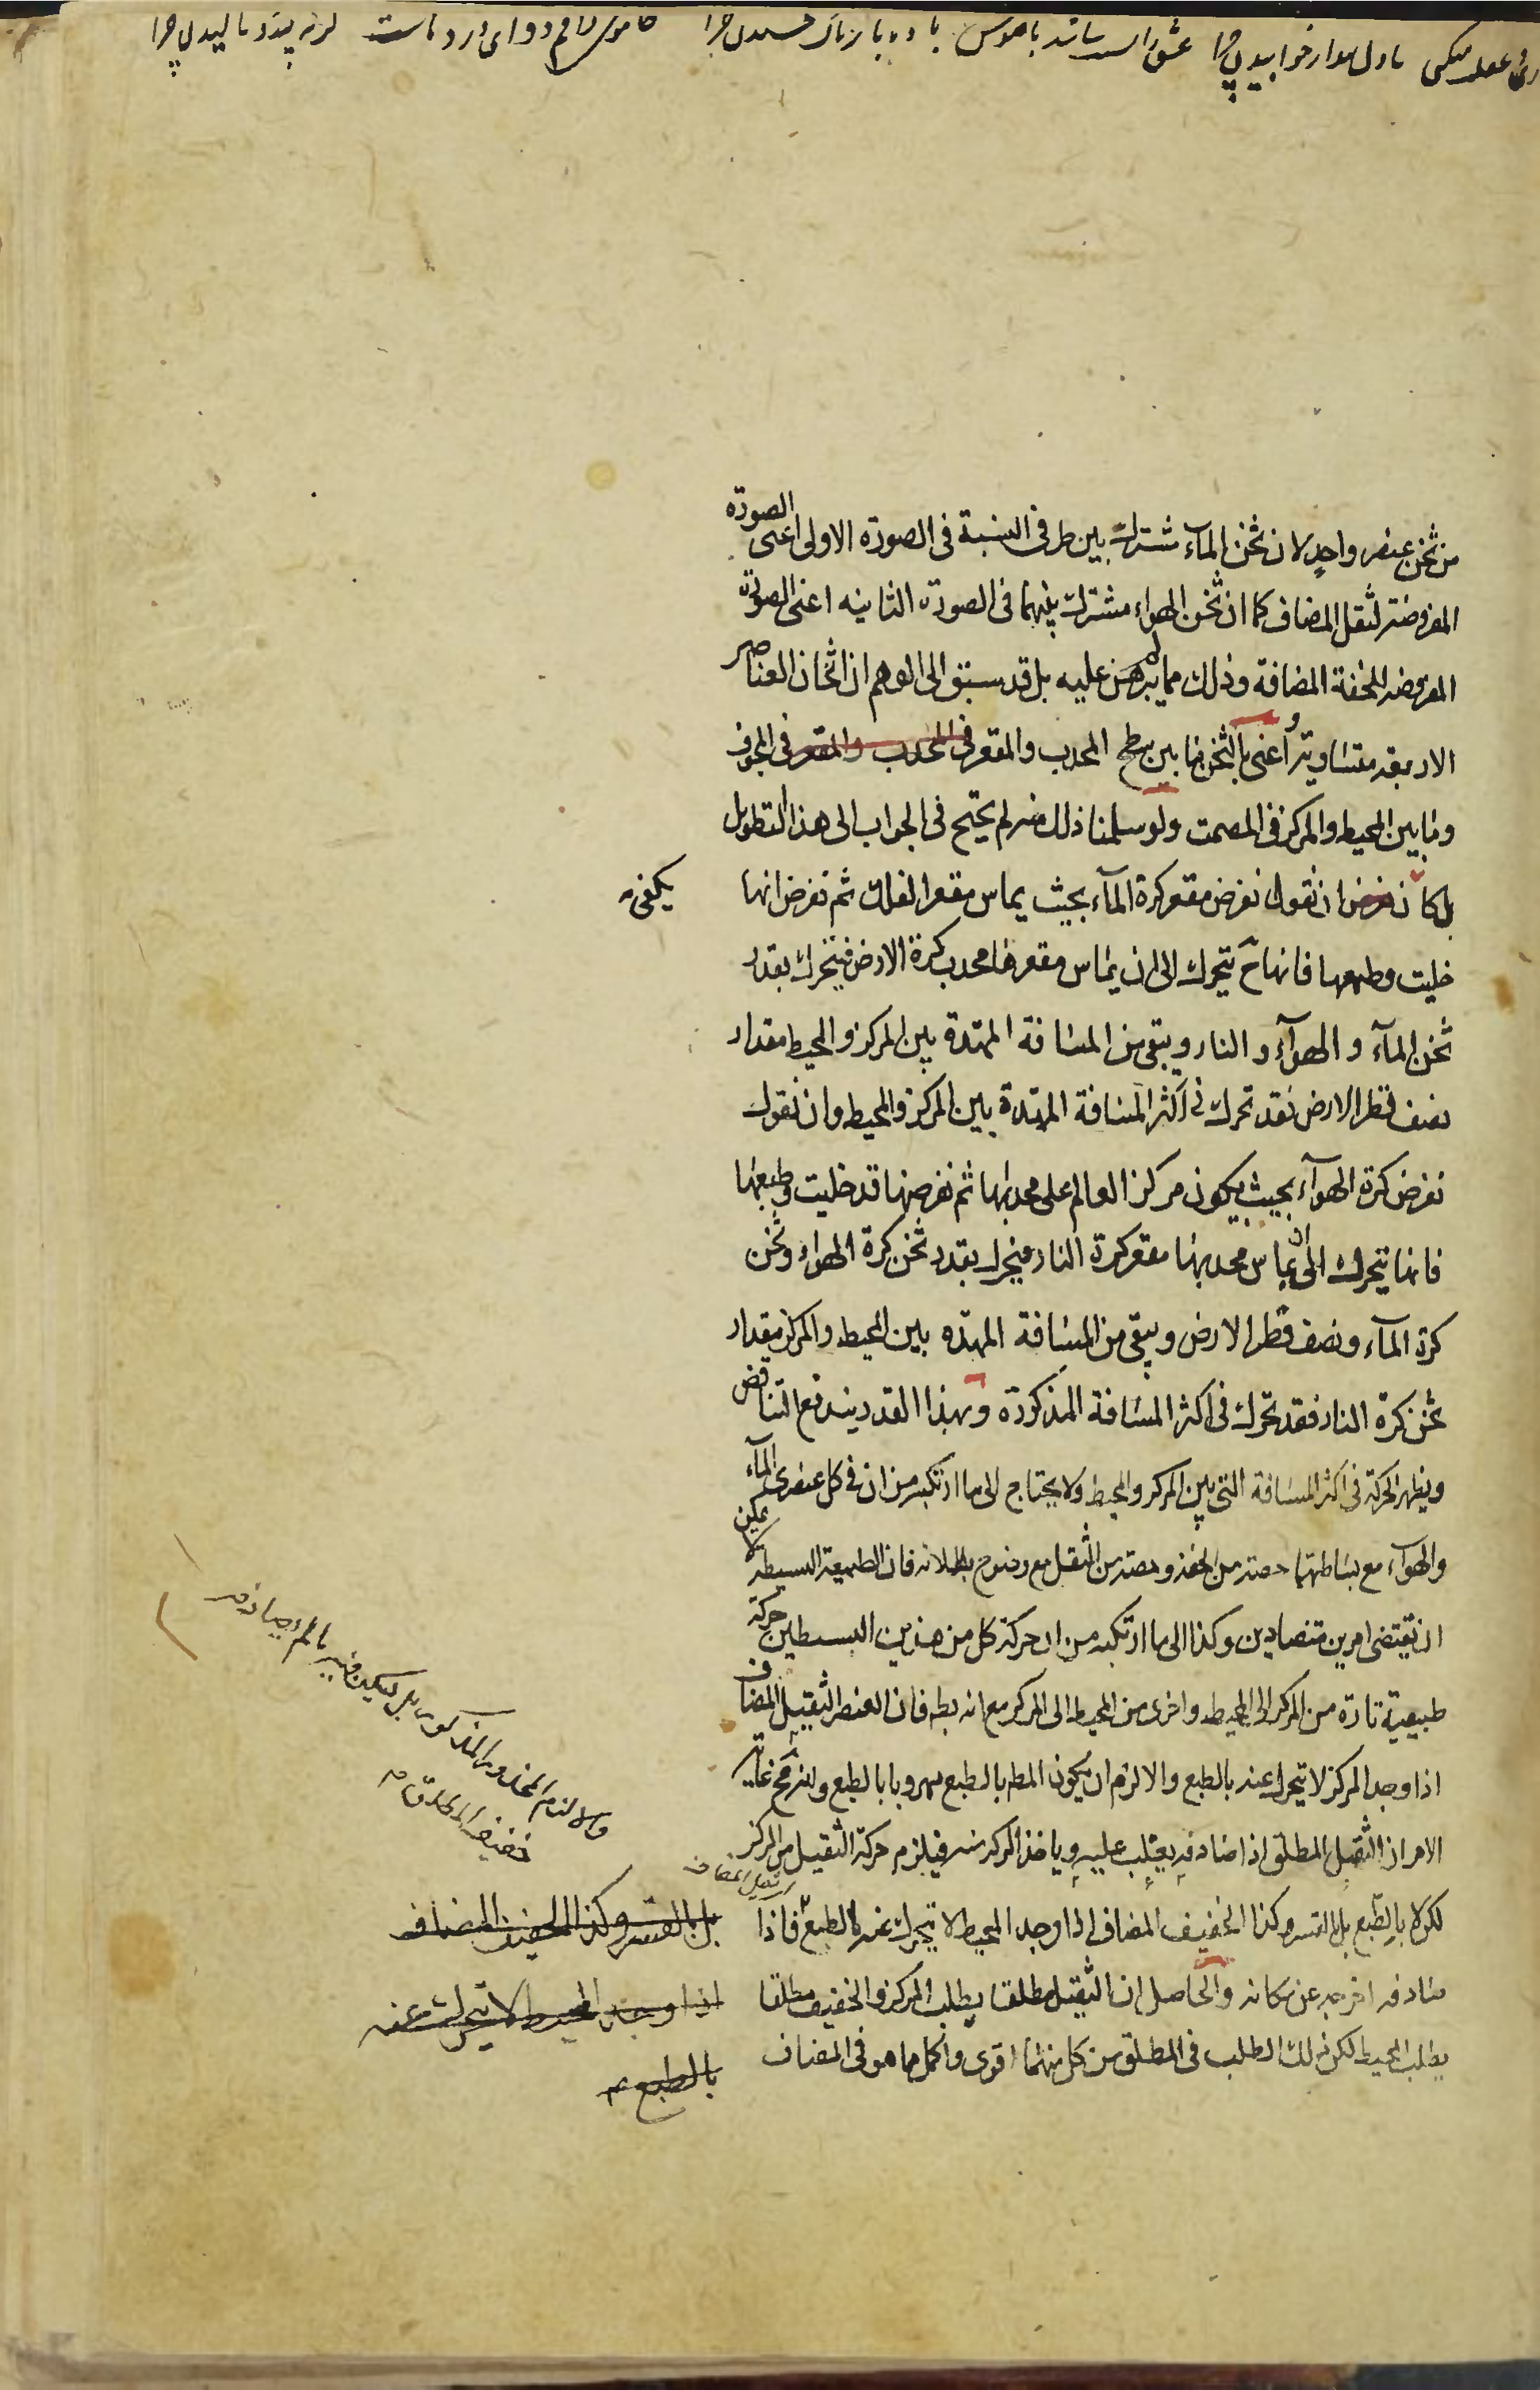 من ثخن عنصر واحد لان ثخن المآء مشترك بين طرفى النسبة فى الصورة الاولى اعنى الصورة
المفروضة لثقل المضاف كما ان ثخن الهواء مشترك بينهما فى الصورة الثانيه اعنى الصورة
المفروضه للخفة المضافة وذلك مما لم يبرهن عليه بل قد سبق الى الوهم ان اثخان العناصر
الاربعة متساوية واعنى بالثخن ما بين سطح المحدب والمقعر فى المحدب والمقعر فى المجوف
وما بين المحيط والمركز فى المصمت ولو سلمنا ذلك منه لم يحتج فى الجواب الى هذا التطويل
بل كان ان نقول نفرض مقعر كرة المآء بحيث يماس مقعر الفلك ثم نفرض انها
يكفى
خليت وطبعها فانها ح يتحرك الى ان يماس مقعرها محدب كرة الارض فيتحرك بقدر
ثخن المآء والهوآء والنار ويبقى من المسافة الممتدة بين المركز والمحيط مقدار
نصف قطر الارض فقد تحرك فى اكثر المسافة الممتدة بين المركز والمحيط وان نقول
نفرض كرة الهوآء بحيث يكون مركز العالم على محدبها ثم نفرضها قد خليت وطبعها
فانها يتحرك الى ان يماس محدبها مقعر كرة النار فيتحرك بقدر ثخن كرة الهواء وثخن
كرة المآء ونصف قطر الارض ويبقى من المسافة الممتده بين المحيط والمركز مقدار
ثخن كرة النار فقد تحرك فى اكثر المسافة المذكورة وبهذا القدر يندفع التناقض
ويظهر الحركة فى اكثر المسافة التى بين المركز والمحيط ولا يحتاج الى ما ارتكبه من ان فى كل عنصرى المآء
والهوآء مع بساطتهما حصة من الخفة وحصة من الثقل مع وضوح بطلانه فان الطبيعة البسيطة لا يمكن
ان تقتضى امرين متضادين وكذا الى ما ارتكبه من ان حركة كل من هذين البسيطين حركة
طبيعية تارة من المركز الى المحيط واخرى من المحيط الى المركز مع انه بط فان العنصر الثقيل المضاف
اذا وجد المركز لا يتحرك عنه بالطبع والا لزم ان يكون المط بالطبع مهروبا بالطبع وليزمح غاية
الامر ان الثقيل المطلق اذا صادفه يغلب عليه وياخذ المركز منه فيلزم حركة الثقيل من المركز
لكن لا بالطبع بل بالقسر وكذا الخفيف المضاف اذا وجد المحيط لا يتحرك عنه بالطبع فاذا
صادفه اخرجه عن مكانه والحاصل ان الثقيل مطلقا يطلب المركز والخفيف مطلقا
يطلب المحيط لكن ذلك الطلب فى المطلق من كل منهما اقوى واكمل مما هو فى المضاف
والا لزم المحذور المذكور بل يسكن فيه ما لم يصادفه
خفيف المطلق
بل بالقسر وكذا الخفيف المضاف
اذا وجد المحيط لا يتحرك عنه
بالطبع